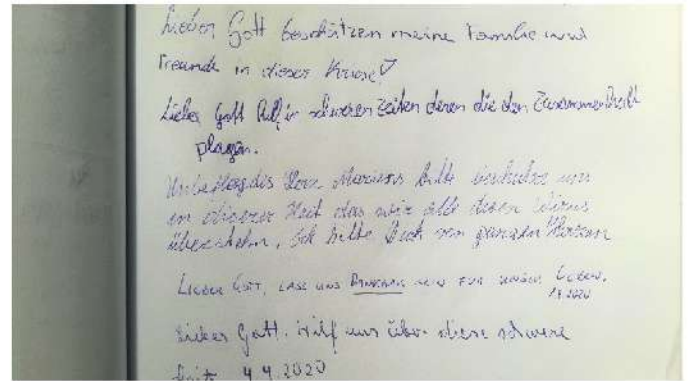 Lieber Gott beschützen meine Familie und
Freunde in dieser Kriese♡
Lieber Gott Hilf in schweren Zeiten denen die den Zusammenhalt
plagen.
Herz Mariens bitte uns
in dieser Zeit das wir alle diesen Virus
überstehn, Ich bitte Dich von ganzen Herzen
LIEBER GOTT, LASS UNS DANKBAR SEIN FÜR UNSER LEBEN.
1.4.2020
Lieber Gott. Hilf uns über diese schwere
Zeit. 4.4.2020